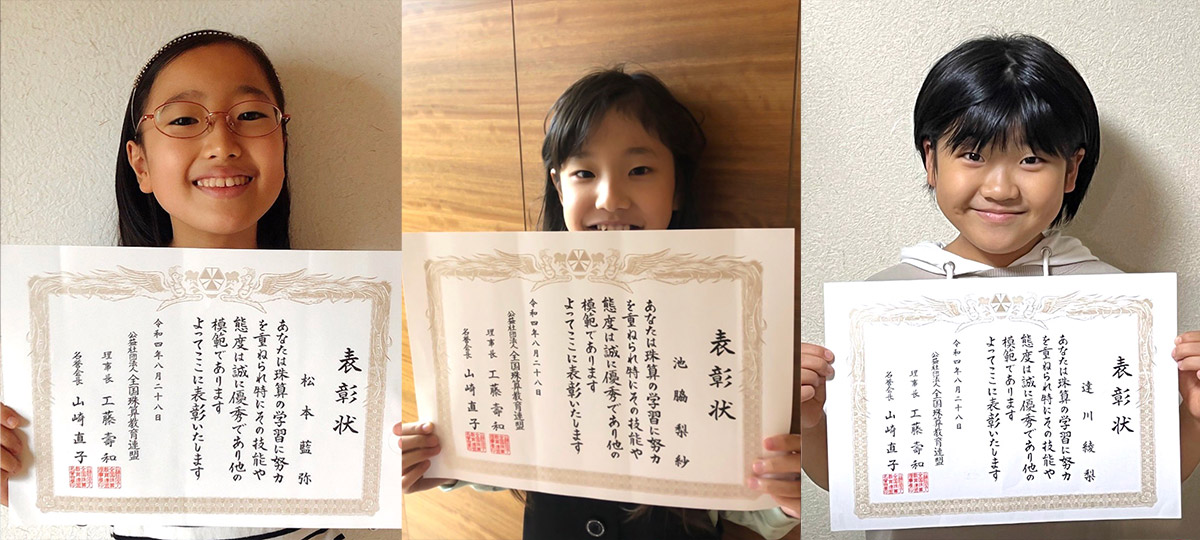 表彰状
松本藍弥
あなたは珠算の学習に努力
を重ねられ特にその技能や
態度は誠に優秀であり他の
模範であります
よってここに表彰いたします
令和四年八月二十八日
公益社団法人全国珠算教育連盟
理事長 工藤壽和
名誉会長 山崎直子
表彰状
池脇梨紗
あなたは珠算の学習に努力
を重ねられ特にその技能や
態度は誠に優秀であり他の
模範であります
よってここに表彰いたします
令和四年八月二十八日
公益社団法人全国珠算教育連盟
理事長 工藤壽和
名誉会長 山崎直子
表彰状
達川綾梨
あなたは珠算の学習に努力
を重ねられ特にその技能や
態度は誠に優秀であり他の
模範であります
よってここに表彰いたします
令和四年八月二十八日
公益社団法人全国珠算教育連盟
理事長 工藤壽和
名誉会長 山崎直子